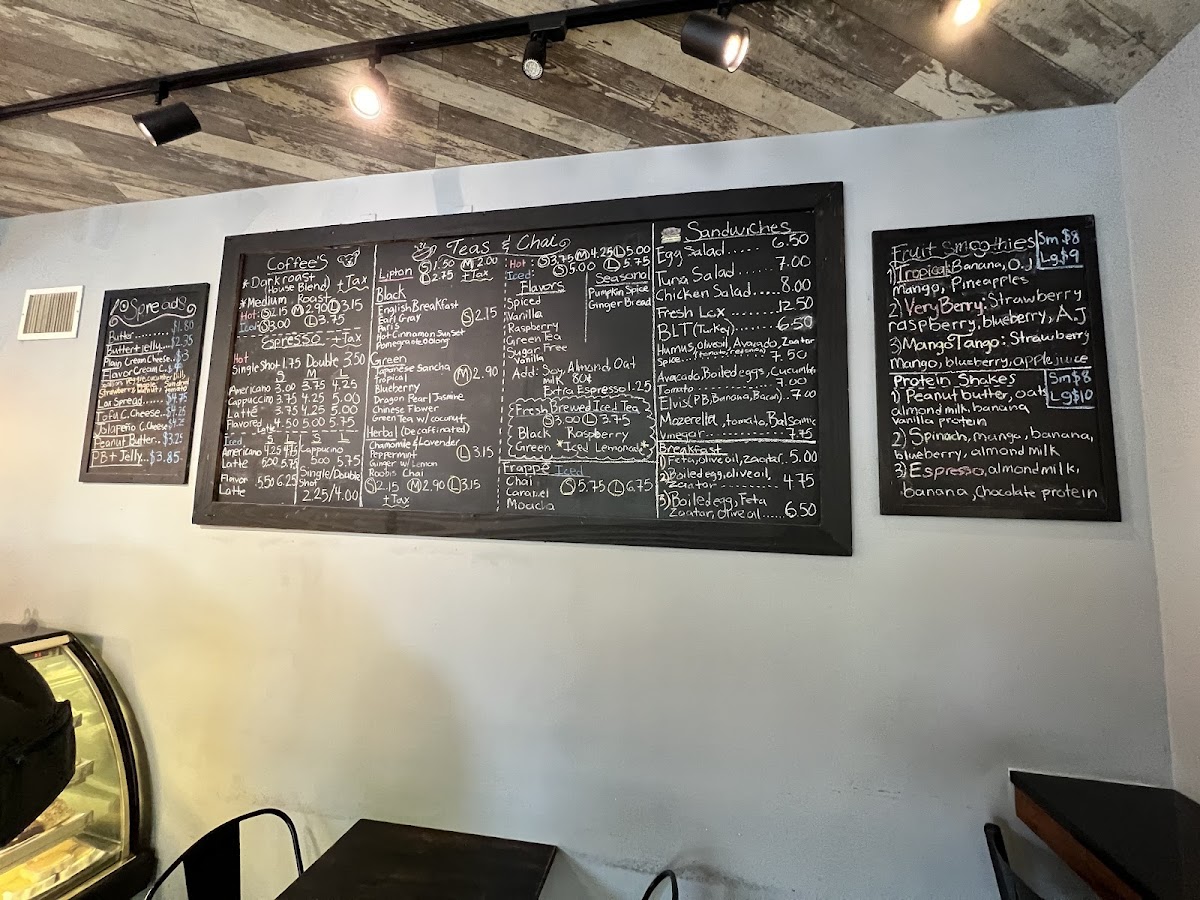 Spreads
Butter.. $1.80
Butter+jelly.. $2.35
Plain Cream Cheese.. $3
Flavor Cream C..
Lox Spread...... $4.75
Tofu C. Cheese.. $4.25
Jalapeño C. Cheese $4.25
Peanut Butter.. $3.25
PB + Jelly.. $3.85
Coffee's
*Dark roast +Tax
House Blend)
*Medium Roast
Hot: S 2.15 M 2.90 L 3.15
Iced S 3.00 L 3.75
Espresso +Tax
Hot
Single Shot 1.75 Double 3.50
S M L
Americano 3.00 3.75 4.25
Cappuccino 3.75 4.25 5.00
Latte 3.75 4.25 5.00
Flavored 4.50 5.00 5.75
Latte
Iced S L
Americano 4.25 4.75
Latte 5.00 5.75
Flavor 5.50 6.25
Latte
S L
Cappucino
5.00 5.75
Single/Double
Shot
2.25/4.00
Teas & Chai
Lipton S 1.50 M 2.00
L 2.75 +Tax
Black
English Breakfast
Earl Gray S 2.15
Paris
Hot Cinnamon Sunset
Pomegranate Oolong
Green
Japanese Sencha
Tropical M 2.90
Blueberry
Dragon Pearl Jasmine
Chinese Flower
Green Tea w/ coconut
Herbal (Decaffinated)
Chamomile & Lavender
Peppermint L 3.15
Ginger w/ Lemon
Rooibis Chai
S 2.15 M 2.90 L 3.15
+Tax
Hot: S 3.75 M 4.25 L 5.00
Iced: S 5.00 L 5.75
Flavors
Spiced
Vanilla
Raspberry
Green Tea
Sugar Free
Vanilla
Seasonal
Pumpkin Spice
Ginger Bread
Add: Soy, Almond, Oat
milk 80¢
Extra Espresso 1.25
Fresh Brewed Iced Tea
S 3.00 L 3.75
Black Raspberry
Green *Iced Lemonade*
Frappe Iced
Chai
Caramel S 5.75 L 6.75
Moacha
Sandwiches
Egg Salad.... 6.50
Tuna Salad.... 7.00
Chicken Salad.... 8.00
Fresh Lox........ 12.50
BLT (Turkey)..... 6.50
Humus, olive oil, Avocado, Zaatar
Spice..(tomato, red onion) 7.50
Avocado, Boiled eggs, Cucumber
Tomato........ 7.00
Elvis (PB, Banana, Bacon).. 7.00
Mozerella, tomato, Balsamic
Vinegar........ 7.75
Breakfast
1) Feta, olive oil, zaatar.. 5.00
2) Boiled egg, olive oil,
Zaatar........ 4.75
3) Boiled egg, Feta
Zaatar, olive oil..... 6.50
Fruit Smoothies Sm $8
Lg. $9
1) Tropical: Banana, O.J,
Mango, Pineapples
2) Very Berry: Strawberry
raspberry, blueberry, A.J
3) Mango Tango: Strawberry
Mango, blueberry, apple juice
Protein Shakes Sm $8
Lg $10
1) Peanut butter, oats
almond milk, banana
vanilla protein
2) Spinach, mango, banana,
blueberry, almond milk
3) Espresso, almond milk,
banana, chocolate protein